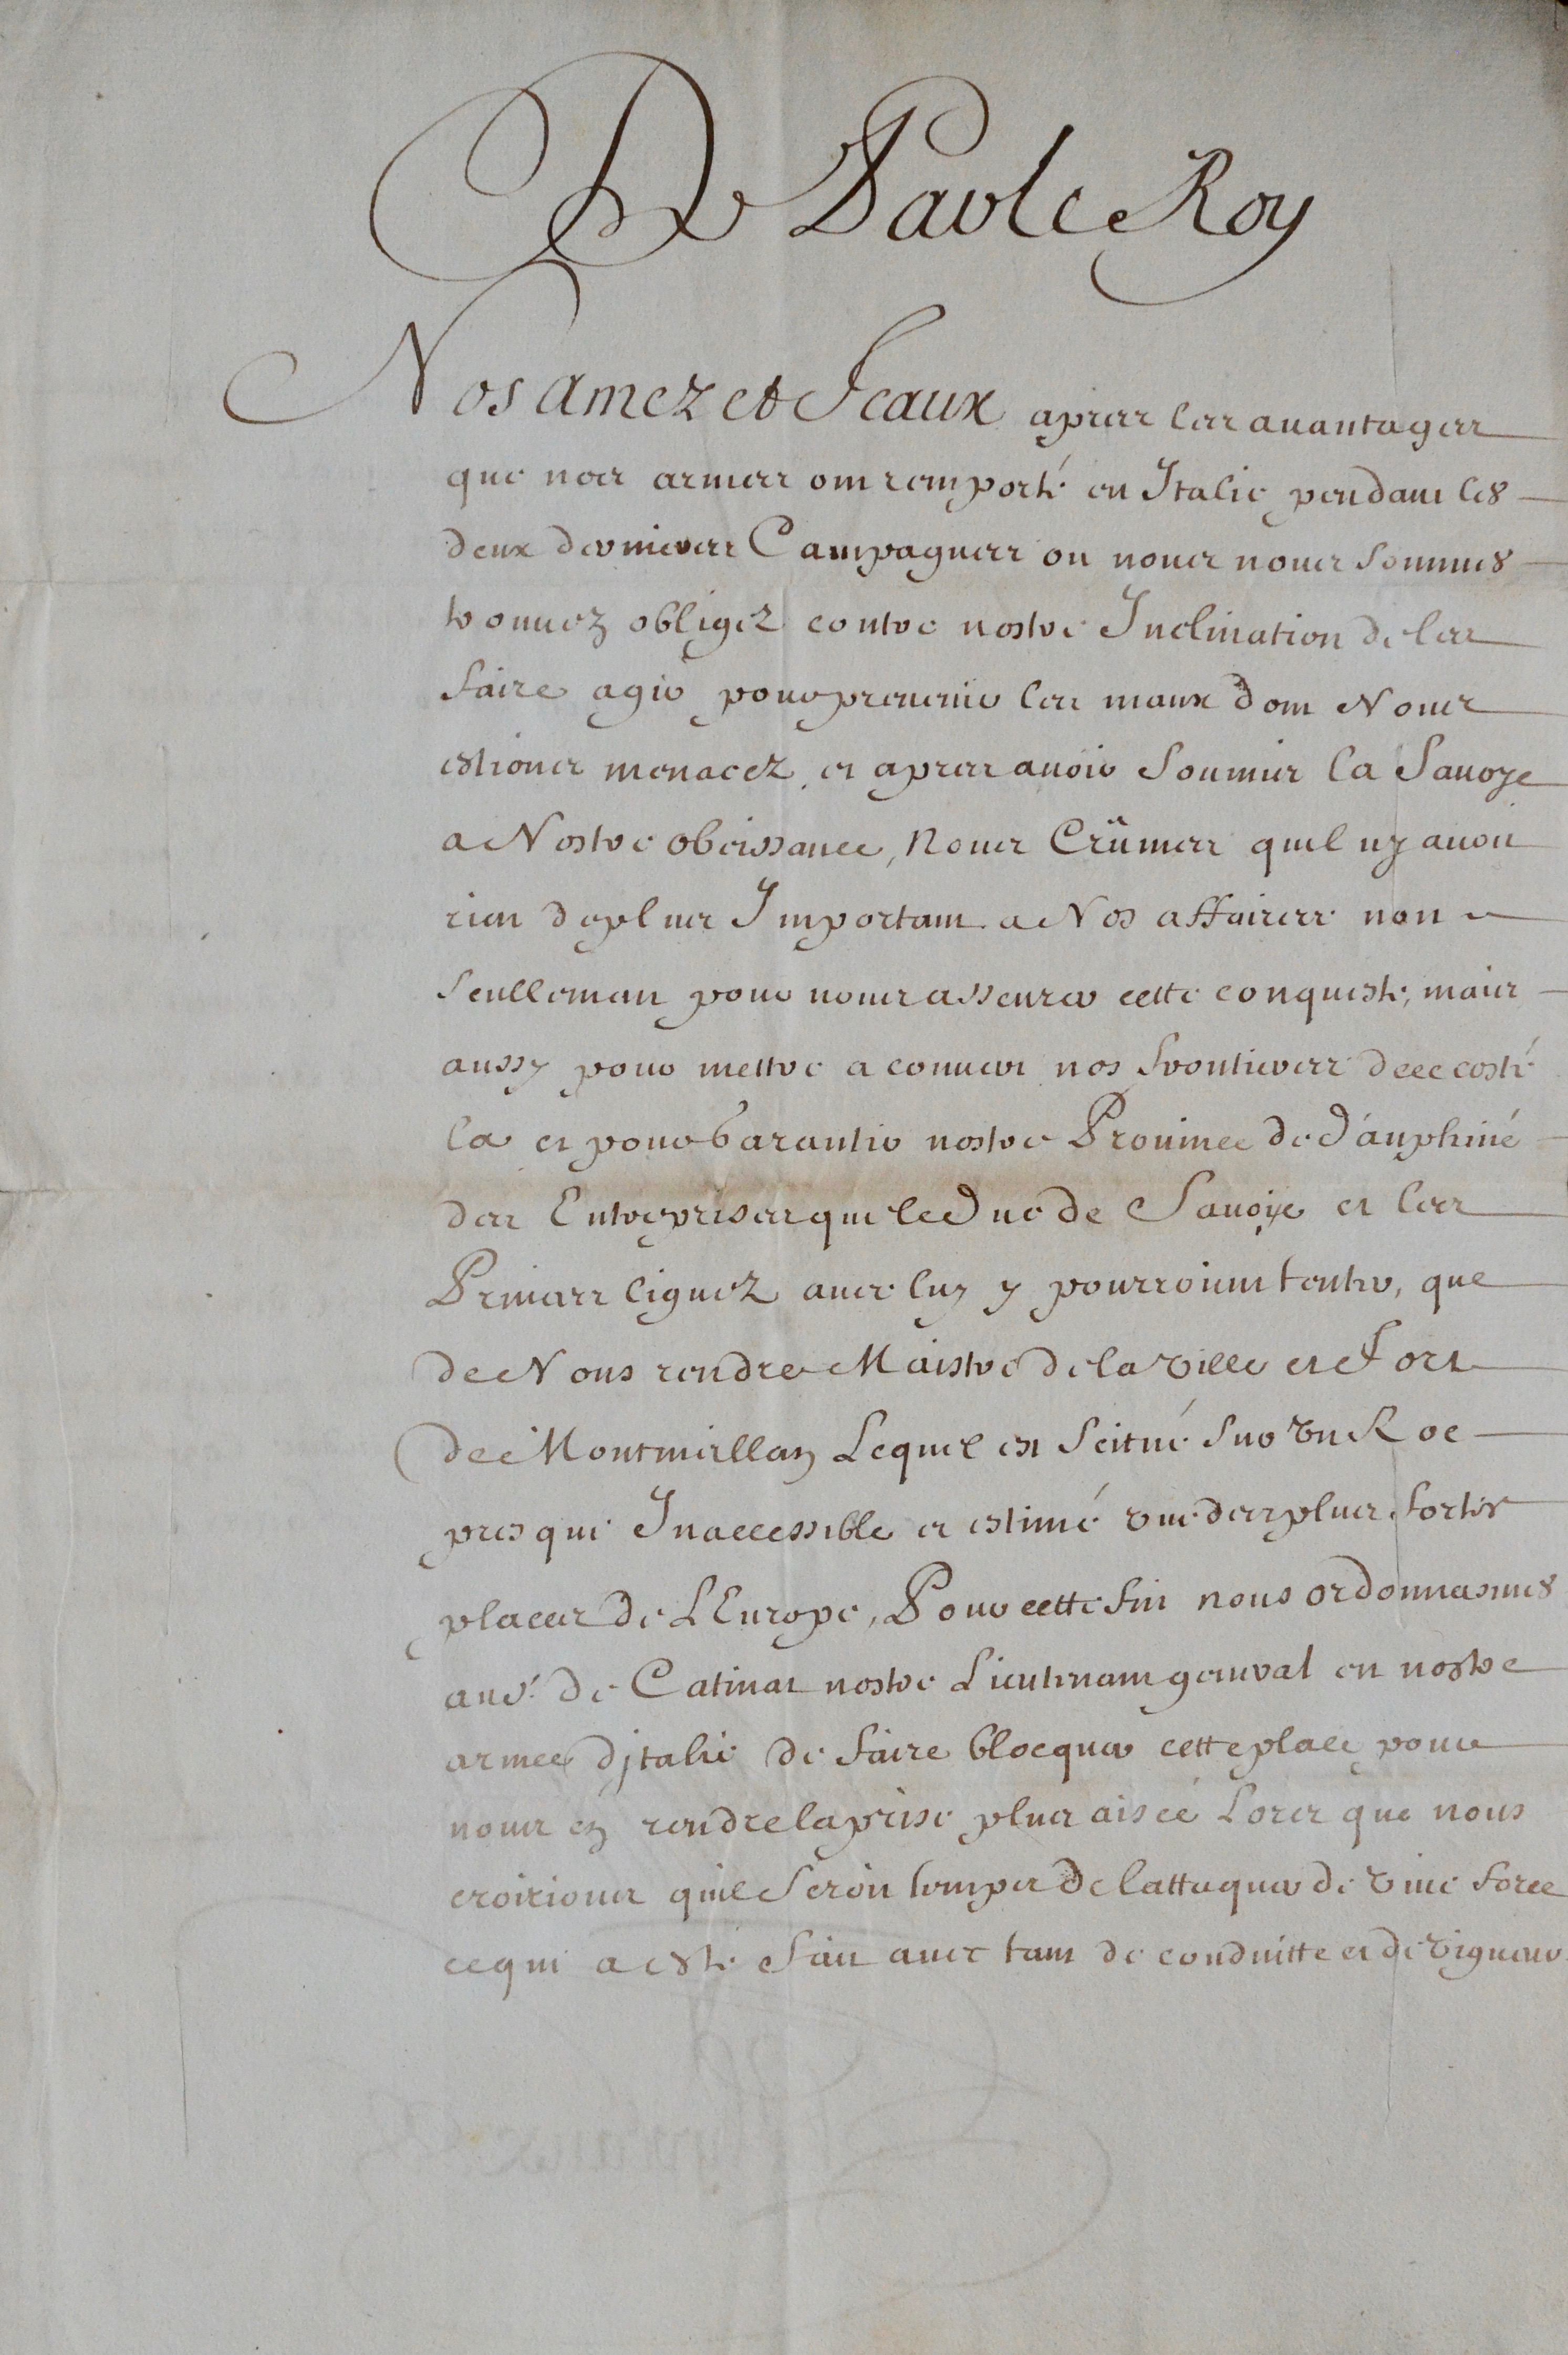 De Par le Roy
Nos amez et feaux apres les auantages
que nos armes ont remporté en Italie pendant les
deux dernieres Campagnes ou nous nous sommes
trouuez obligez contre nostre Inclination de les
faire agir pour preuenir les maux dont Nous
estions menacez, et apres auoir soumis la Sauoye
a Nostre obeissance, Nous Crûmes quil ny auoit
rien de plus Important a Nos affaires non
seullement pour nous asseurer cette conqueste, mais
aussy pour mettre a couuert nos frontieres de ce costé
la et pour Garantir nostre Prouince de Dauphiné
des Entreprises que le Duc de Sauoye et les
Princes liguez auec luy y pourroient tenter, que
de Nous rendre Maistre de la ville et Fort
de Montmeillan Lequel est scitué sur vn Roc
presque Inaccessible et estimé vne des plus fortes
places de LEurope, Pour cette fin nous ordonnasmes
au Sr. de Catinat nostre Lieutenant general en nostre
armee djtalie de faire blocquer cette place pour
nous en rendre la prise plus aisée Lors que nous
croirions quil seroit temps de lattaquer de viue force
ce qui a esté fait auec tant de conduitte et de vigueur